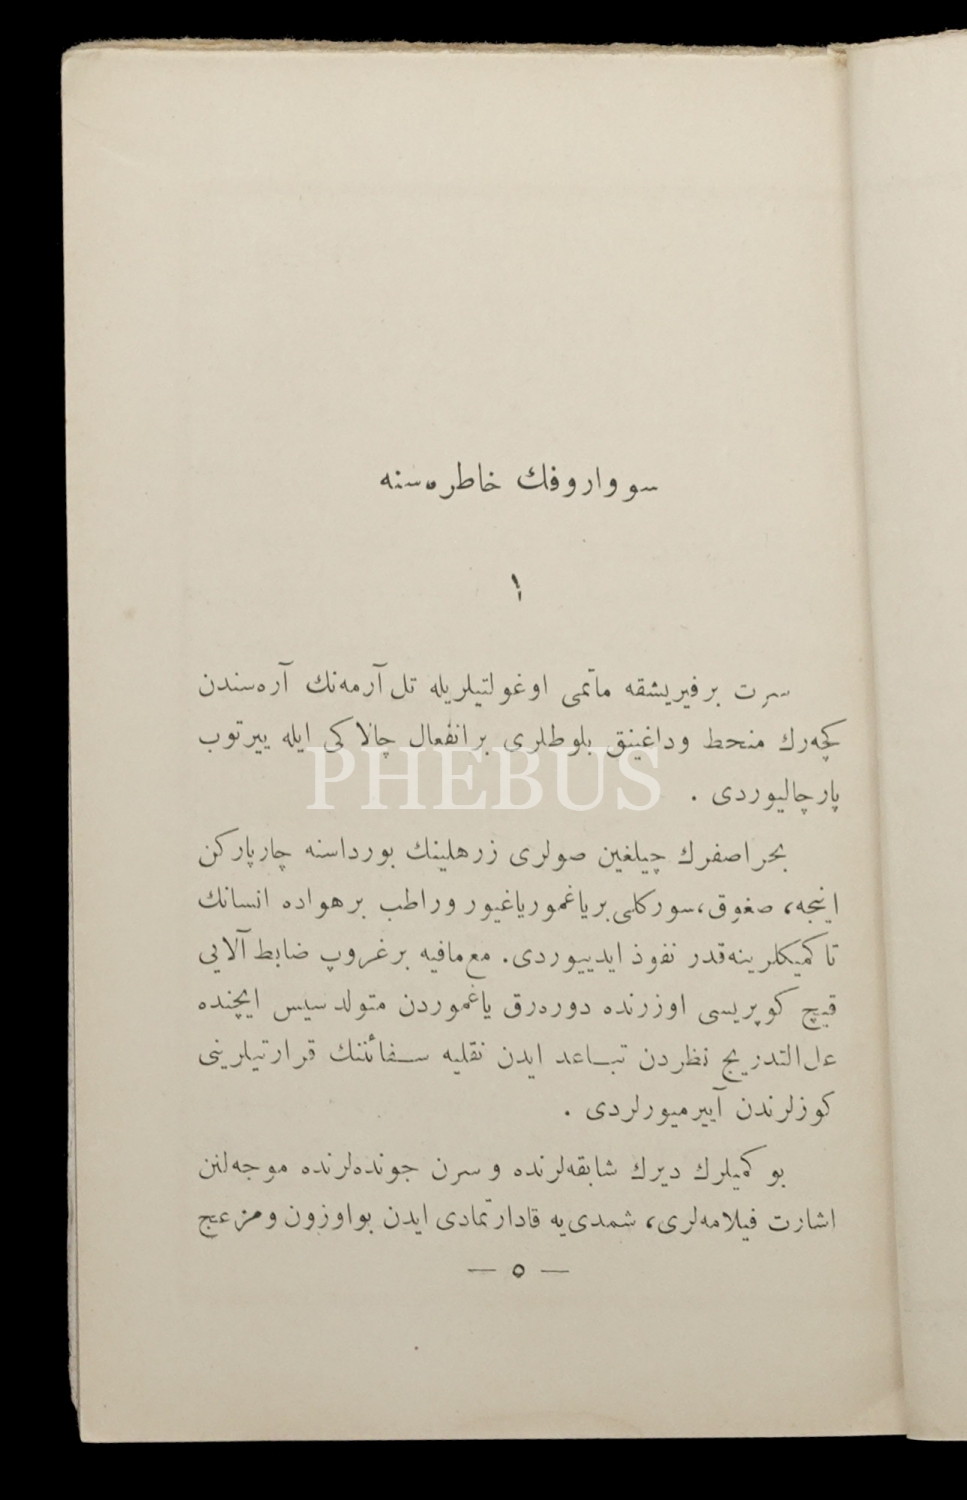 سوواروفك خاطره‌سنه
١
سرت برفيريشقه ماتمى اوغولتيلريله تل آرمه‌نك آره‌سندن
كچه‌رك منحط وداغينق بلوطلرى برانفعال چالاكى ايله ييرتوب
پارچاليوردى .
بحر اصفرك چيلغين صولرى زرهلينك بورداسنه چارپاركن
اينجه، صغوق، سوركلى برياغمورياغيور وراطب برهواده انسانك
تا كميكلرينه‌قدر نفوذ ايدييوردى. مع‌مافيه برغروپ ضابط آلايى
قيچ كوپريسى اوزرنده دوره‌رق ياغموردن متولد سيس ايچنده
عل‌التدريج نظردن تباعد ايدن نقليه سفائننك قرارتيلرينى
كوزلرندن آييرميورلردى .
بو كميلرك ديرك شابقه‌لرنده و سرن جونده‌لرنده موجه‌لنن
اشارت فيلامه‌لرى، شمدى‌يه قادار تمادى ايدن بواوزون ومزعج
— ٥ —
PHEBUS